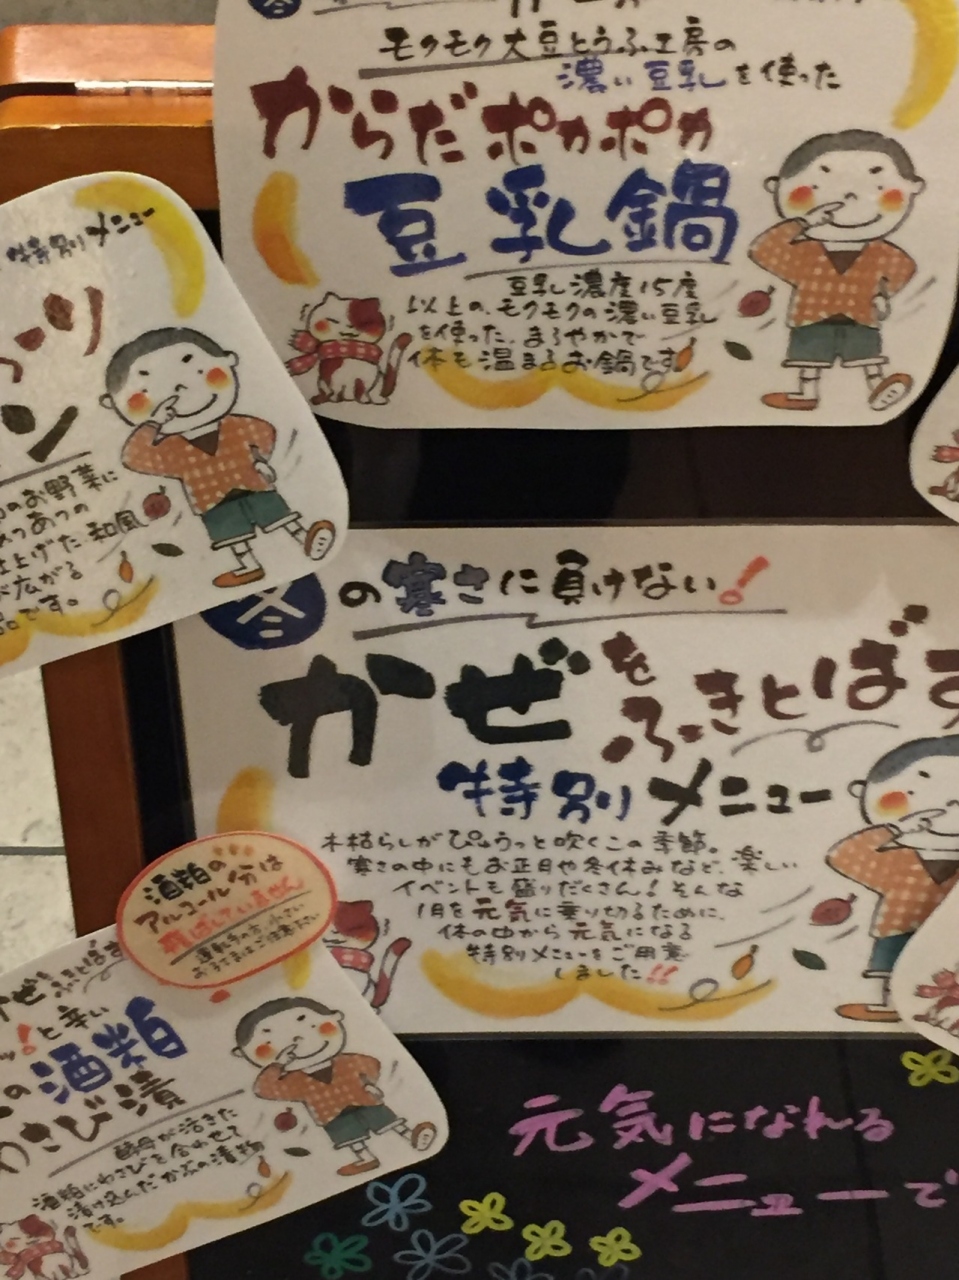 モクモク大豆とうふ工房の
濃い豆乳を使った
からだポカポカ
豆乳鍋
豆乳濃度15度
以上の、モクモクの濃い豆乳
を使った、まろやかで
体も温まるお鍋です。
特別メニュー
のお野菜に
あつあつの
仕上げた和風
が広がる
品です。
冬の寒さに負けない!
かぜをふきとばす
特別メニュー
木枯らしがぴゅうっと吹くこの季節。
寒さの中にもお正月や冬休みなど、楽しい
イベントも盛りだくさん!そんな
1月を元気に乗り切るために、
体の中から元気になる
特別メニューをご用意
しました!!
酒粕の
アルコール分は
飛ばしていません
かぜをふきとばす
ッ!と辛い
の酒粕
わさび漬
酵母が活きた
酒粕にわさびを合わせて
漬け込んだかぶの漬物
です。
元気になれる
メニューで